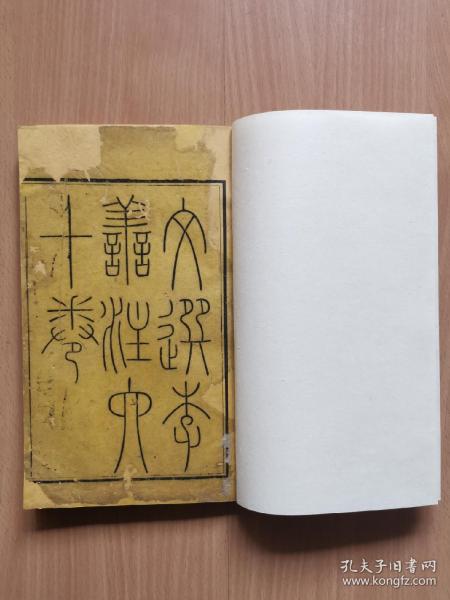 文選李
善注六
十卷
孔夫子旧书网
www.kongfz.com